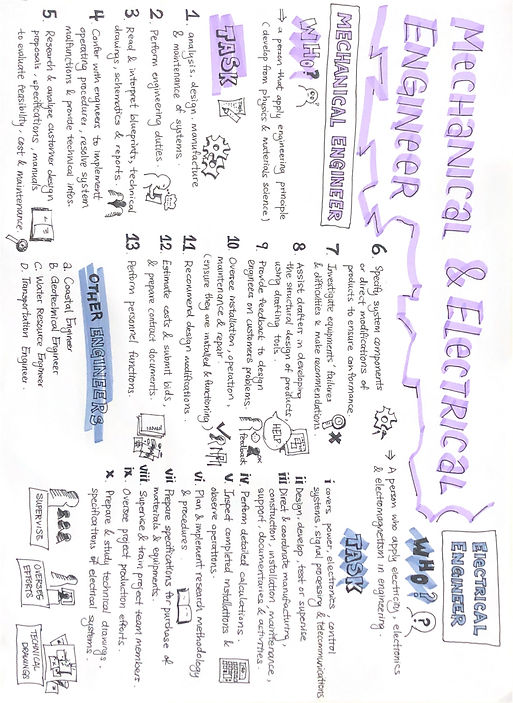 Mechanical & Electrical
Engineer
MECHANICAL ENGINEER
WHO?
→ a person that apply engineering principle
(develop from physics & materials science)
TASK
1. analysis, design, manufacture
& maintenance of systems.
2. Perform engineering duties.
3 Read & interpret blueprints, technical
drawings, schematics & reports.
4 Confer with engineers to implement
operating procedurer, resolve system
malfunctions & provide technical infos.
5 Research & analyze customer design
proposals, specifications, manuals
to evaluate feasibility, cost & maintenance
6. Specify system components
or direct modifications of
products to ensure conformance
7 Investigate equipments failures
& difficulties & make recommendations.
8 Assist drafters in developing
the structural design of products
using drafting tools.
HELP
9. Provide feedback to design
engineers on customers problems.
feedback
10 Oversee installation, operation,
maintenance & repair
(ensure they are installed & functioning
11 Recommend design modifications.
12 Estimate costs & submit bids,
& prepare contract documents.
13 Perform personnel functions
OTHER ENGINEERS
a. Coastal Engineer
B. Geotechnical Engineer
C. Water Resource Engineer
D. Transportation Engineer.
ELECTRICAL
ENGINEER
WHO?
→ A person who apply electricity, electronics
& electromagnetism in engineering
TASK
i covers power, electronics, control
systems, signal processing & telecommunications
ii Design, develop, test or supervise
iii Direct & coordinate manufacturing,
construction, installation, maintenance,
support, documentations & activities.
iv Perform detailed calculations.
v. Inspect completed installations &
observe operations.
vi Plan & implement research methodology
& procedures
vii Prepare specifications for purchase of
materials & equipments.
viii. Supervise & train project team members.
ix. Oversee project production efforts.
x. Prepare & study technical drawings,
specifications of electrical systems.
SUPERVISE
OVERSEE
EFFORTS
TECHNICAL
DRAWINGS